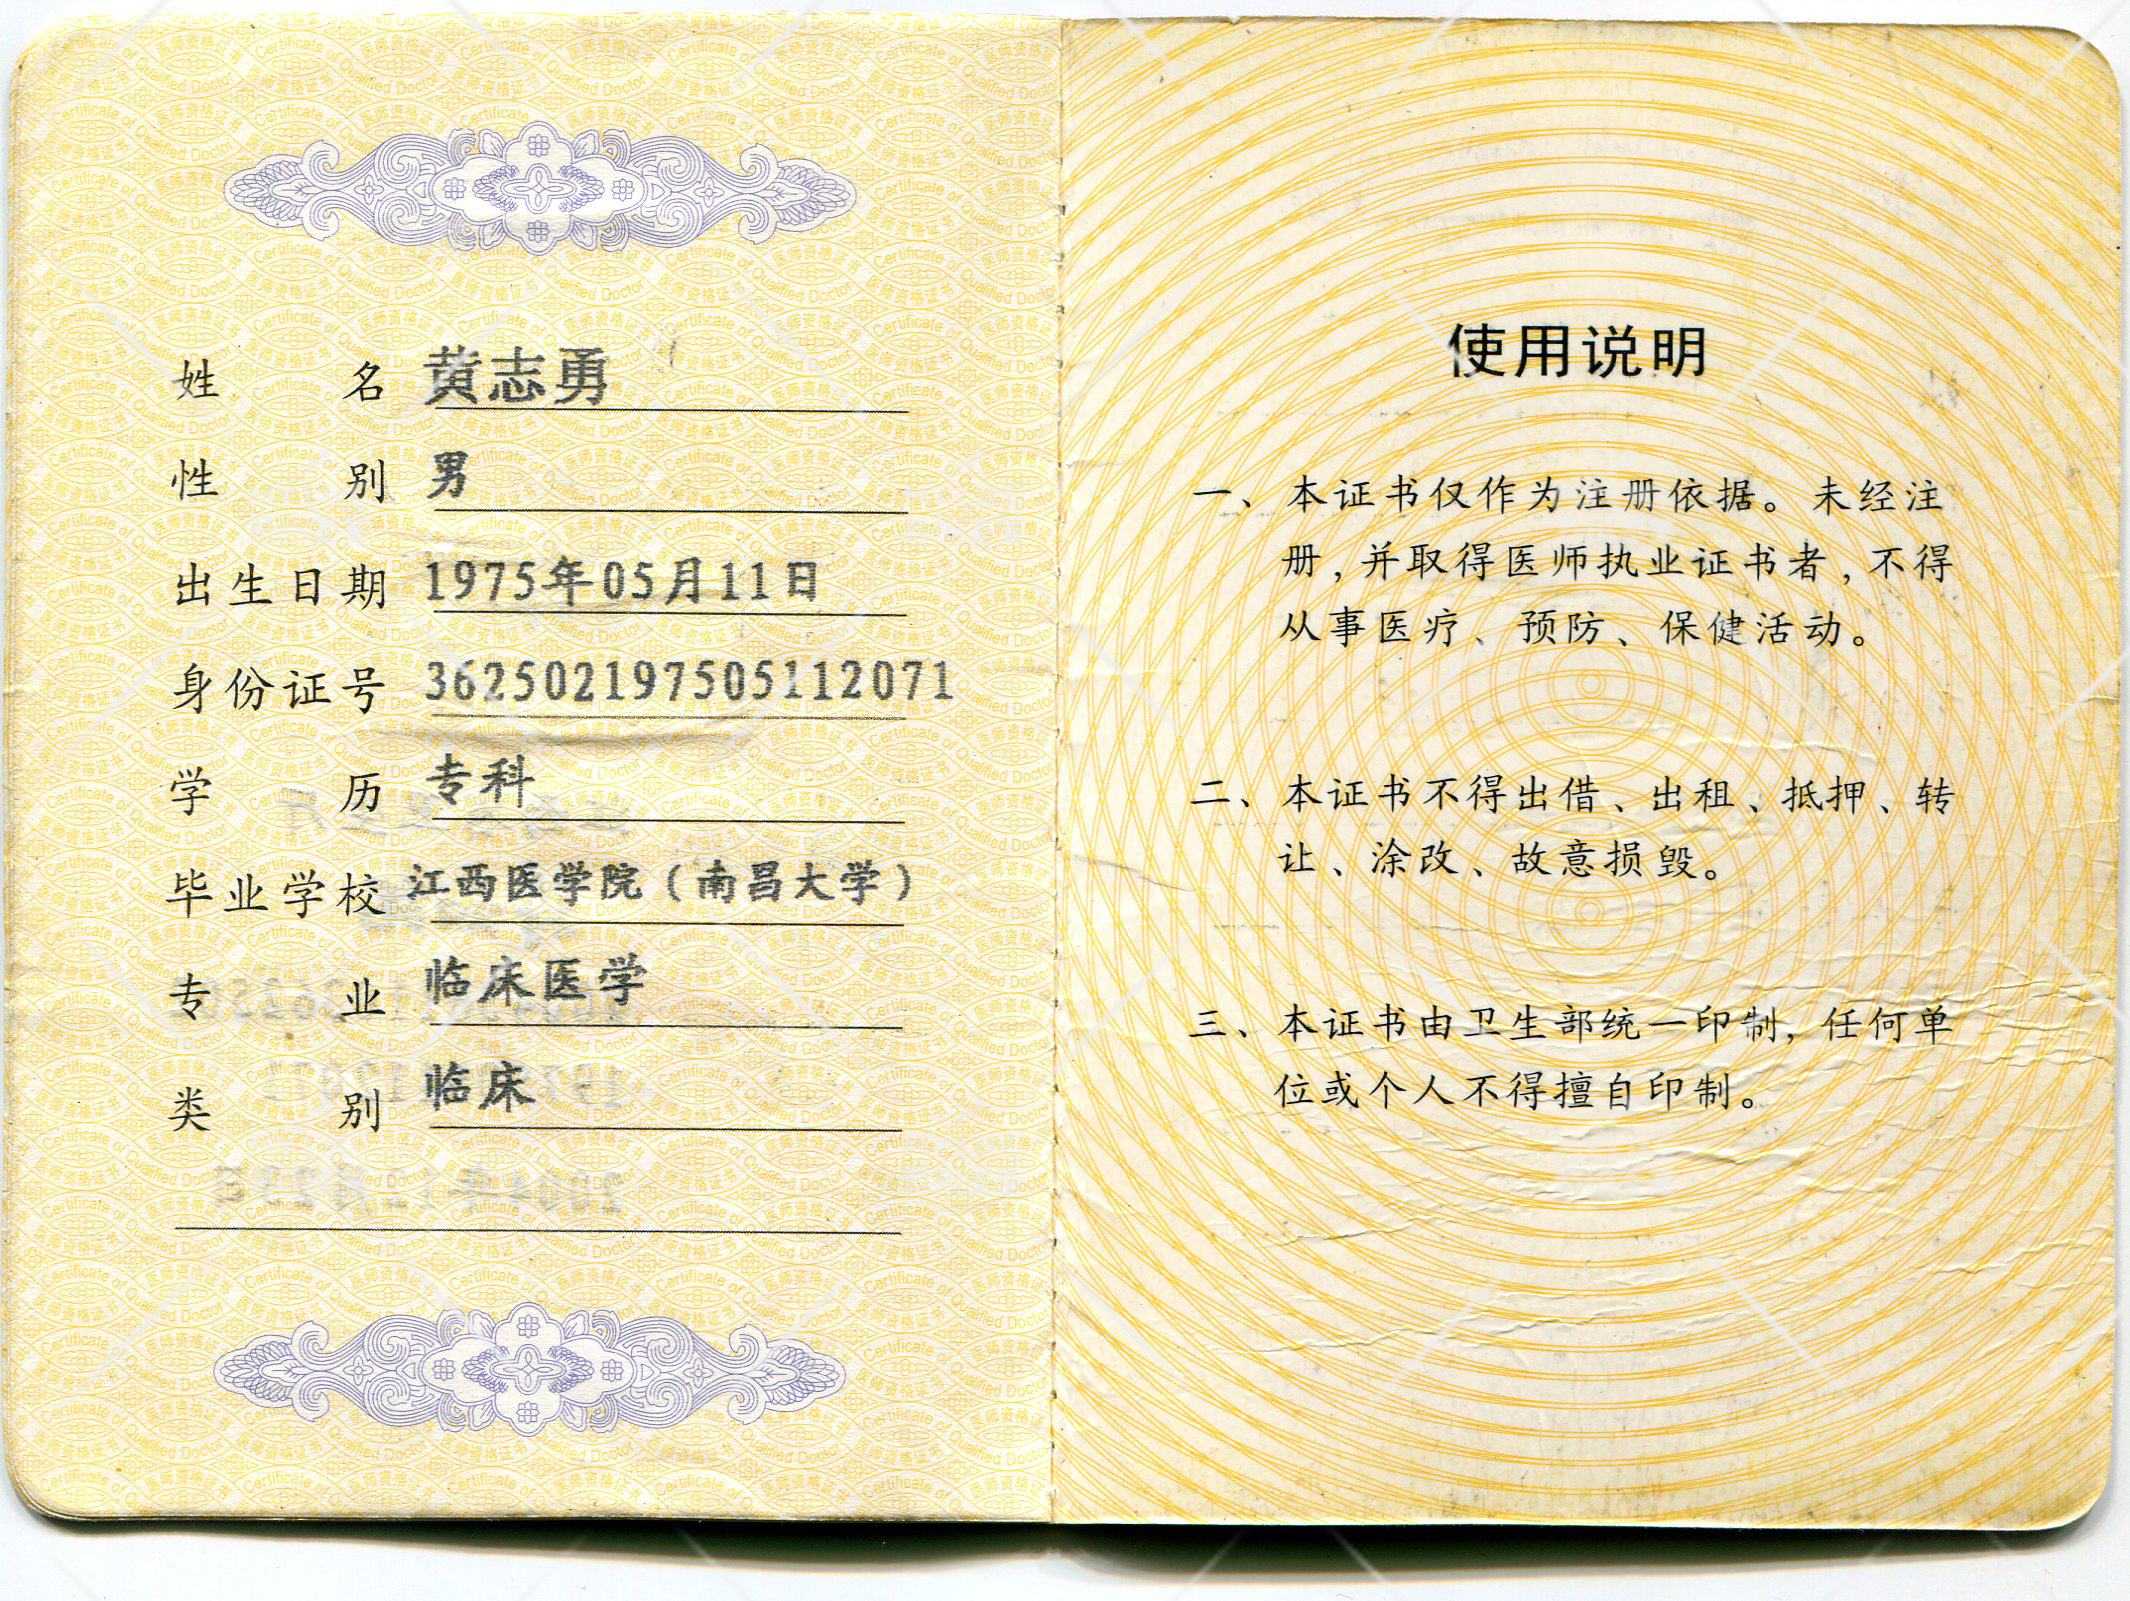 姓名 黄志勇
性别 男
出生日期 1975年05月11日
身份证号 362502197505112071
学历 专科
毕业学校 江西医学院（南昌大学）
专业 临床医学
类别 临床
使用说明
一、本证书仅作为注册依据。未经注
册，并取得医师执业证书者，不得
从事医疗、预防、保健活动。
二、本证书不得出借、出租、抵押、转
让、涂改、故意损毁。
三、本证书由卫生部统一印制，任何单
位或个人不得擅自印制。